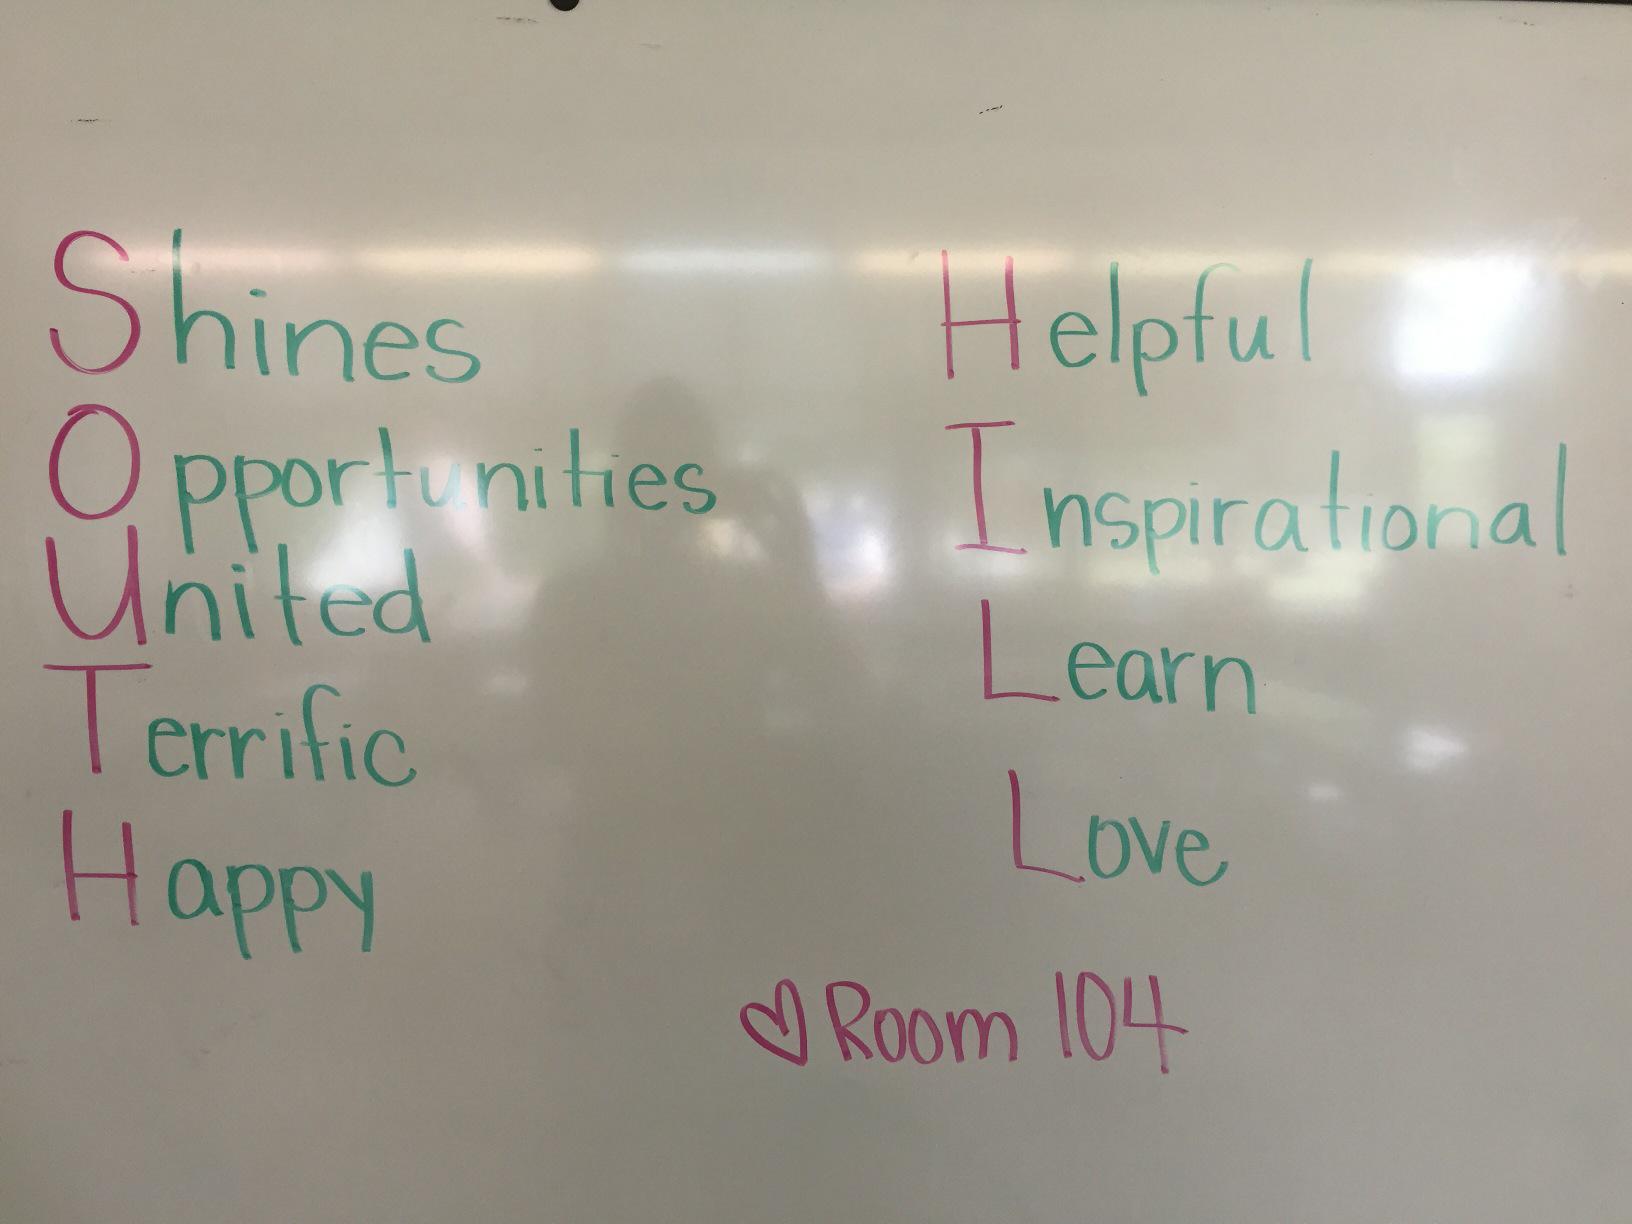 Shines
Opportunities
United
Terrific
Happy
Helpful
Inspirational
Learn
Love
♡ Room 104